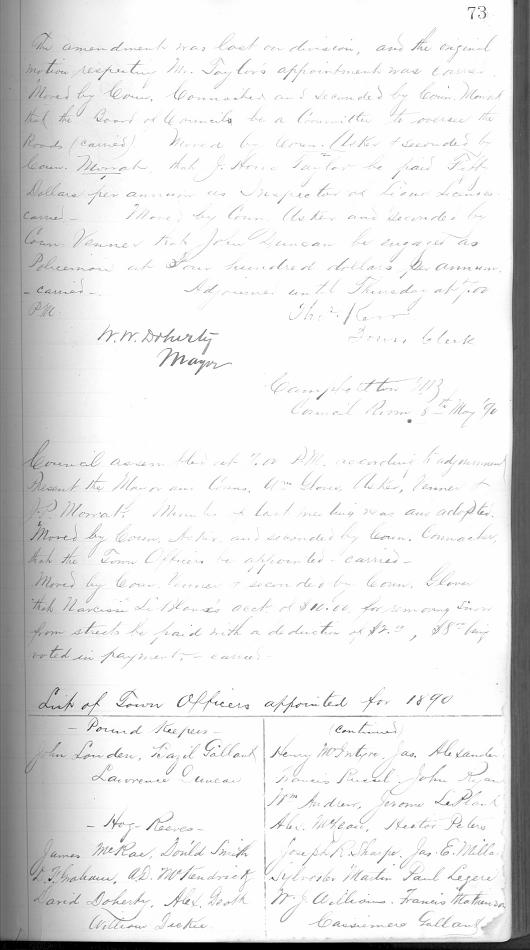 73
The amendment was lost on division, and the original
motion respecting Mr. Taylor's appointment was carried.
Moved by Coun. Connacher and seconded by Coun. Mowat
that the Board of Councils be a Committee to oversee the
Roads (carried) Moved by Coun. Asker & seconded by
Coun. Mowat that J. Horne Taylor be paid Fifty
Dollars per annum as Inspector of Liquor Licenses
carried- Moved by Coun. Asker and seconded by
Coun. Venner that John Duncan be engaged as
Policeman at Four hundred dollars per annum.
-carried- Adjourned until Thursday at 7.00
P.M.
Thos. Kerr
Town Clerk
W.W. Doherty
Mayor
Campbellton NB
Council Room, 8th May '90
Council assembled at 7.00 P.M. according to adjournment
Present the Mayor and Couns. Wm Glover, Asker, Venner &
J.P. Mowat. Minutes of last meeting was adopted.
Moved by Coun. Asker and seconded by Coun. Connacher,
that the Town Officers be appointed - carried-
Moved by Coun. Venner & seconded by Coun. Glover
that Narcisse LeBlanc's acct of $10.00, for removing snow
from streets be paid with a deduction of $2.00, $8.00 being
voted in payment. - carried-
List of Town Officers appointed for 1890
- Pound Keepers -
John Louden, Bazil Gallant
Lawrence Duncan
- Hog-Reeves -
James McRae, Donald Smith
Graham, A.D. McKendrick
David Doherty, Alex.
William Dickie
(continued)
Henry McIntyre, Jas. Alexander
Francis John Ryan
Wm Andrew, Jerome LePlant
Alex. McLean, Hector Peters
Joseph R. Sharpe, Jas. E. Millar
Sylvester Martin Paul Legere
W. J. Williams. Francis Matheson
Cassimere Gallant